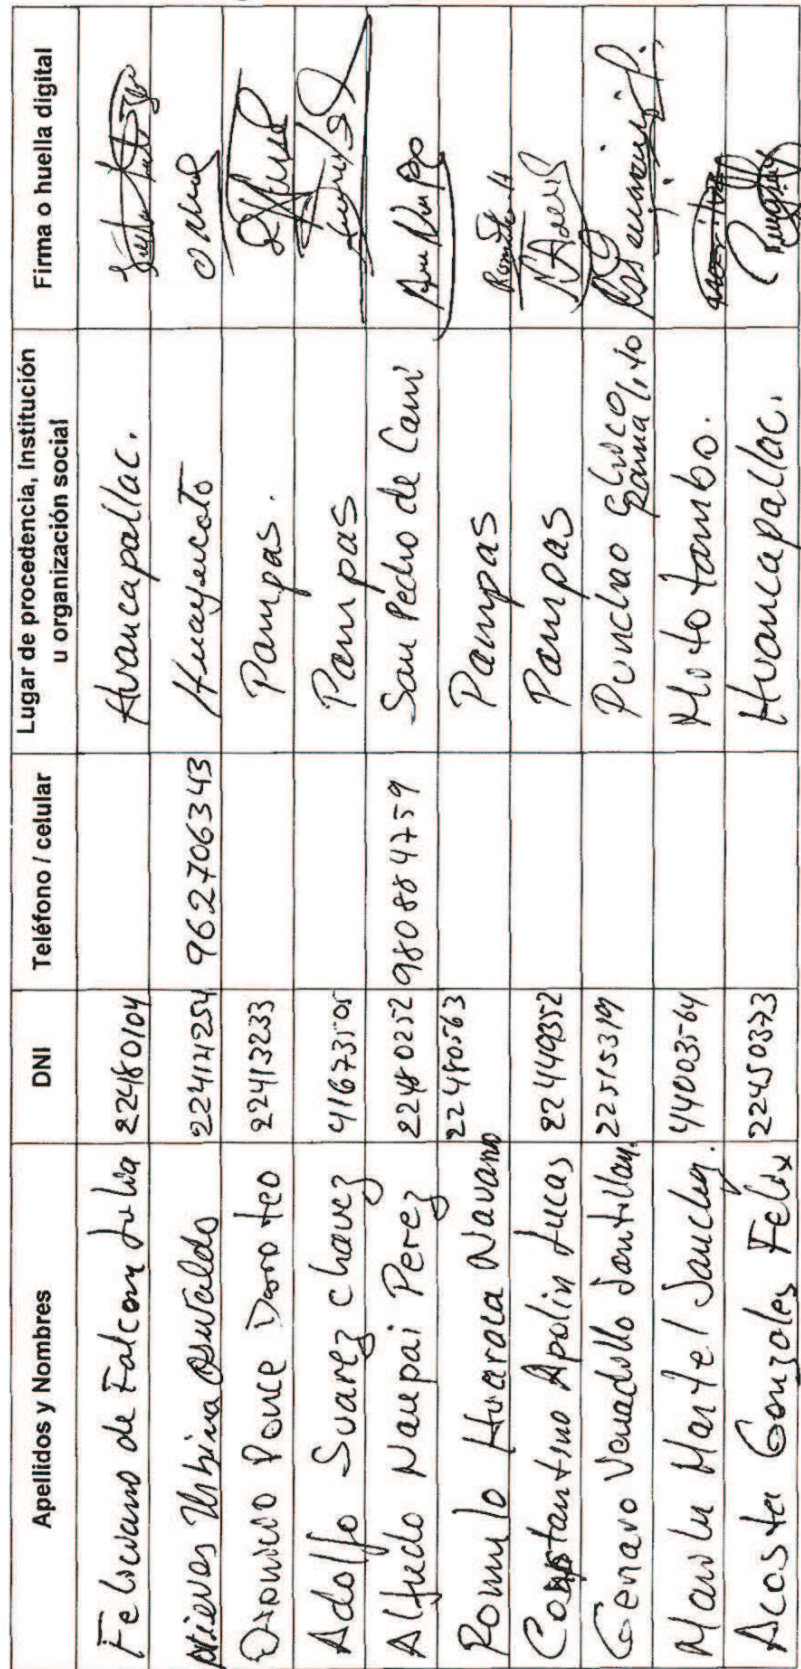 Apellidos y Nombres DNI Teléfono / celular Lugar de procedencia, Institución u organización social Firma o huella digital
Feliciano de Falcon Julia 22480104 Huancapallac.
Nieves Urbina Oswaldo 962706343 Huayucoto
Dionicio Ponce Doroteo 22413233 Pampas.
Adolfo Suarez Chavez 41673505 Pampas
Alfredo Naupai Perez 22480252 980884759 San Pedro de Cani
Romulo Huaraca Navano 22480563 Pampas
Constantino Apolin Lucas 22449352 Pampas
Genaro Venadillo Santillan. 22515319 Punchao Chico
Marilu Martel Sanchez. 44003564 Mito tambo.
Acosta Gonzales Felix 22450373 Huancapallac.